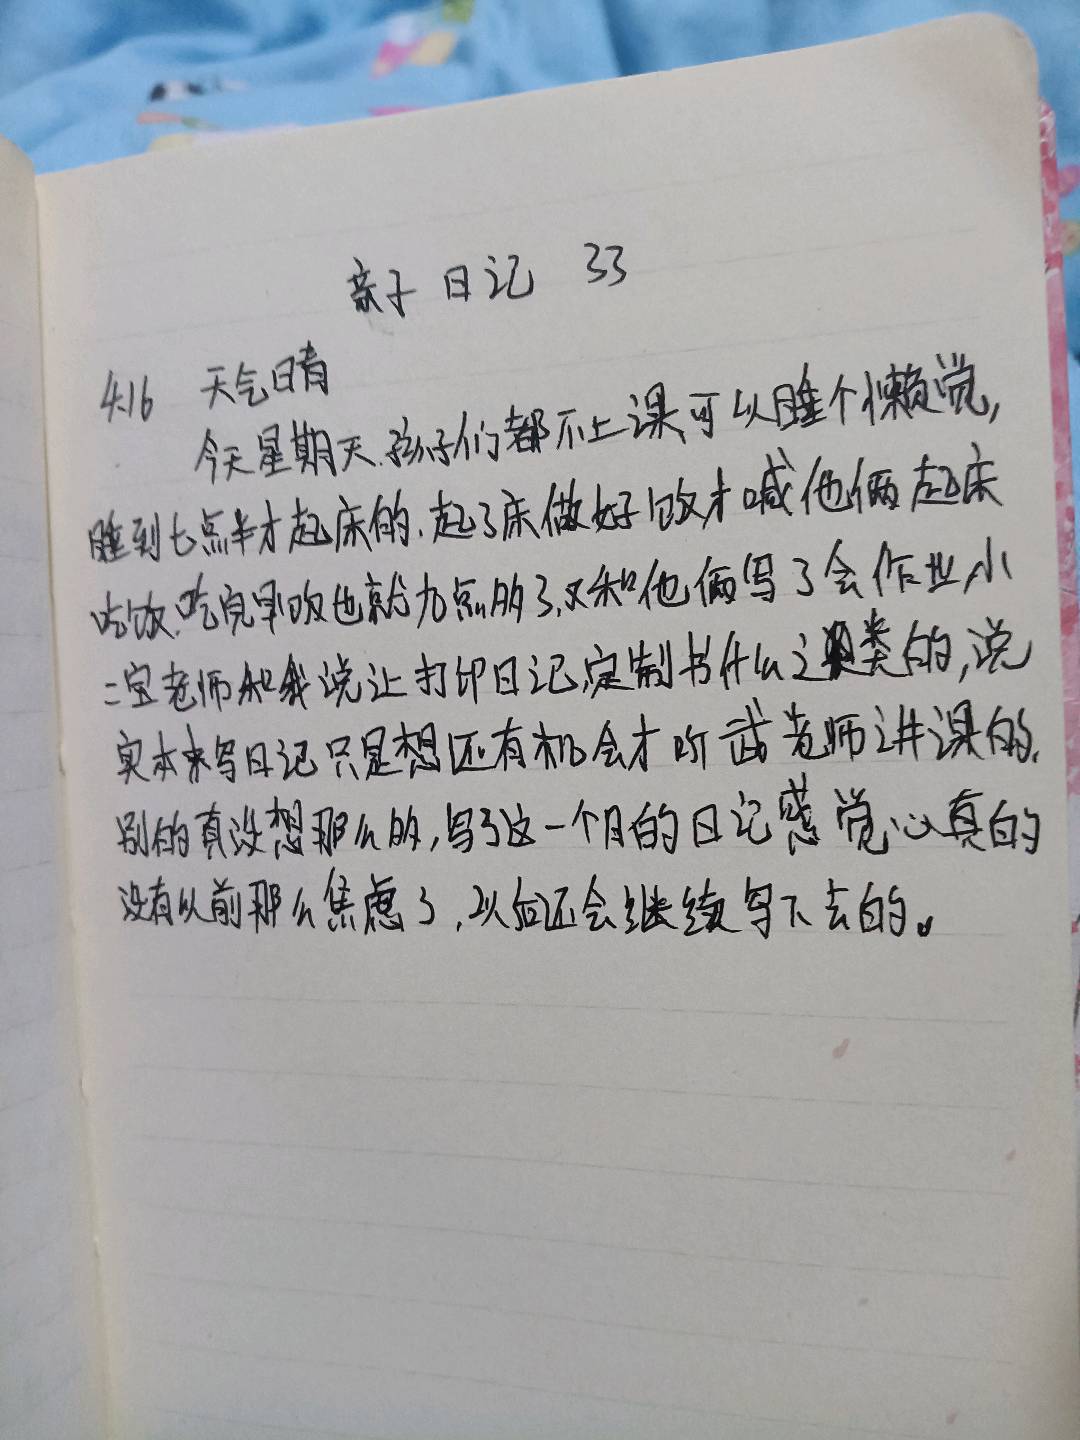 亲子日记 33
4.16 天气晴
今天星期天.孩子们都不上课,可以睡个懒觉,
睡到七点半才起床的.起了床做好饭才喊他俩起床
吃饭.吃完早饭也就九点的了.又和他俩写了会作业,小
二宝老师和我说让打印日记,定制书什么之类的,说
实本来写日记只是想还有机会才听武老师讲课的.
别的真没想那么的,写了这一个月的日记感觉心真的
没有以前那么焦虑了,以后还会继续写下去的。